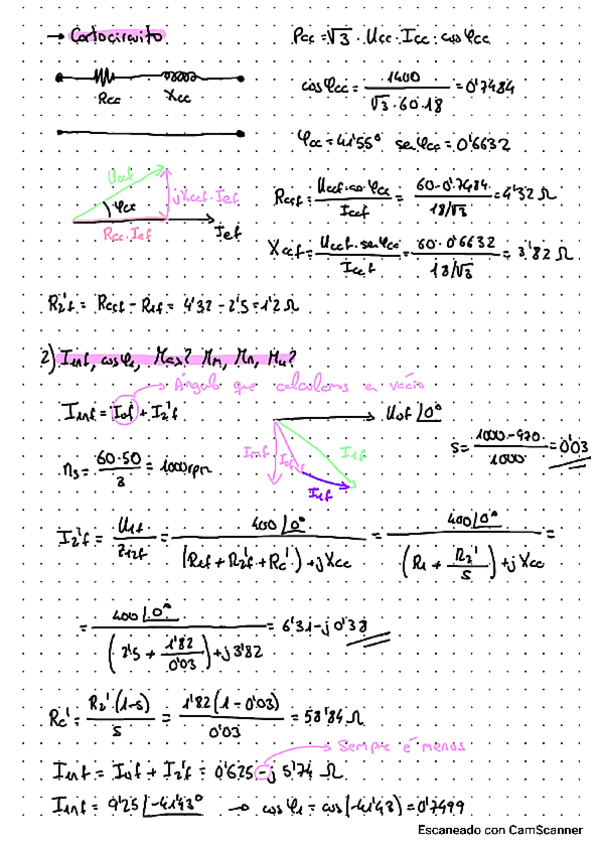 → Cortocircuito
Pcc = √3 · Ucc · Icc · cosφcc
Rcc Xcc
cosφcc = 1400 / (√3 · 60 · 18) = 0'7484
φcc = 41'55° senφcc = 0'6632
Uccf jXccf · Ief
φcc
Rcc · Ief Ief
Rccf = Uccf · cosφcc / Iccf = 60 · 0'7484 / (18/√3) = 4'32 Ω
Xccf = Uccf · senφcc / Iccf = 60 · 0'6632 / (18/√3) = 3'82 Ω
R2'f = Rccf - R1f = 4'32 - 2'5 = 1'2 Ω
2) I1nf, cosφ1, Mmm, Mn, Mu?
→ Ángulo que calculamos en vacío
I1nf = I0f + I2'f
U0f |0°
Imf I0f I1f
I2f
s = (1000 - 970) / 1000 = 0'03
ns = 60 · 50 / 3 = 1000 rpm
I2'f = U1f / Z12f = 400 |0° / ((R1f + R2'f + Rc') + jXcc) = 400 |0° / ((R1 + R2'/s) + jXcc) =
= 400 |0° / ((2'5 + 1'82/0'03) + j3'82) = 6'31 - j0'38
Rc' = R2' (1-s) / s = 1'82 (1 - 0'03) / 0'03 = 58'84 Ω
→ Sempre é menos
I1nf = I0f + I2'f = 0'625 - j 5'74 Ω
I1nf = 9'25 |-41'43° → cosφ1 = cos(-41'43) = 0'7499
Escaneado con CamScanner